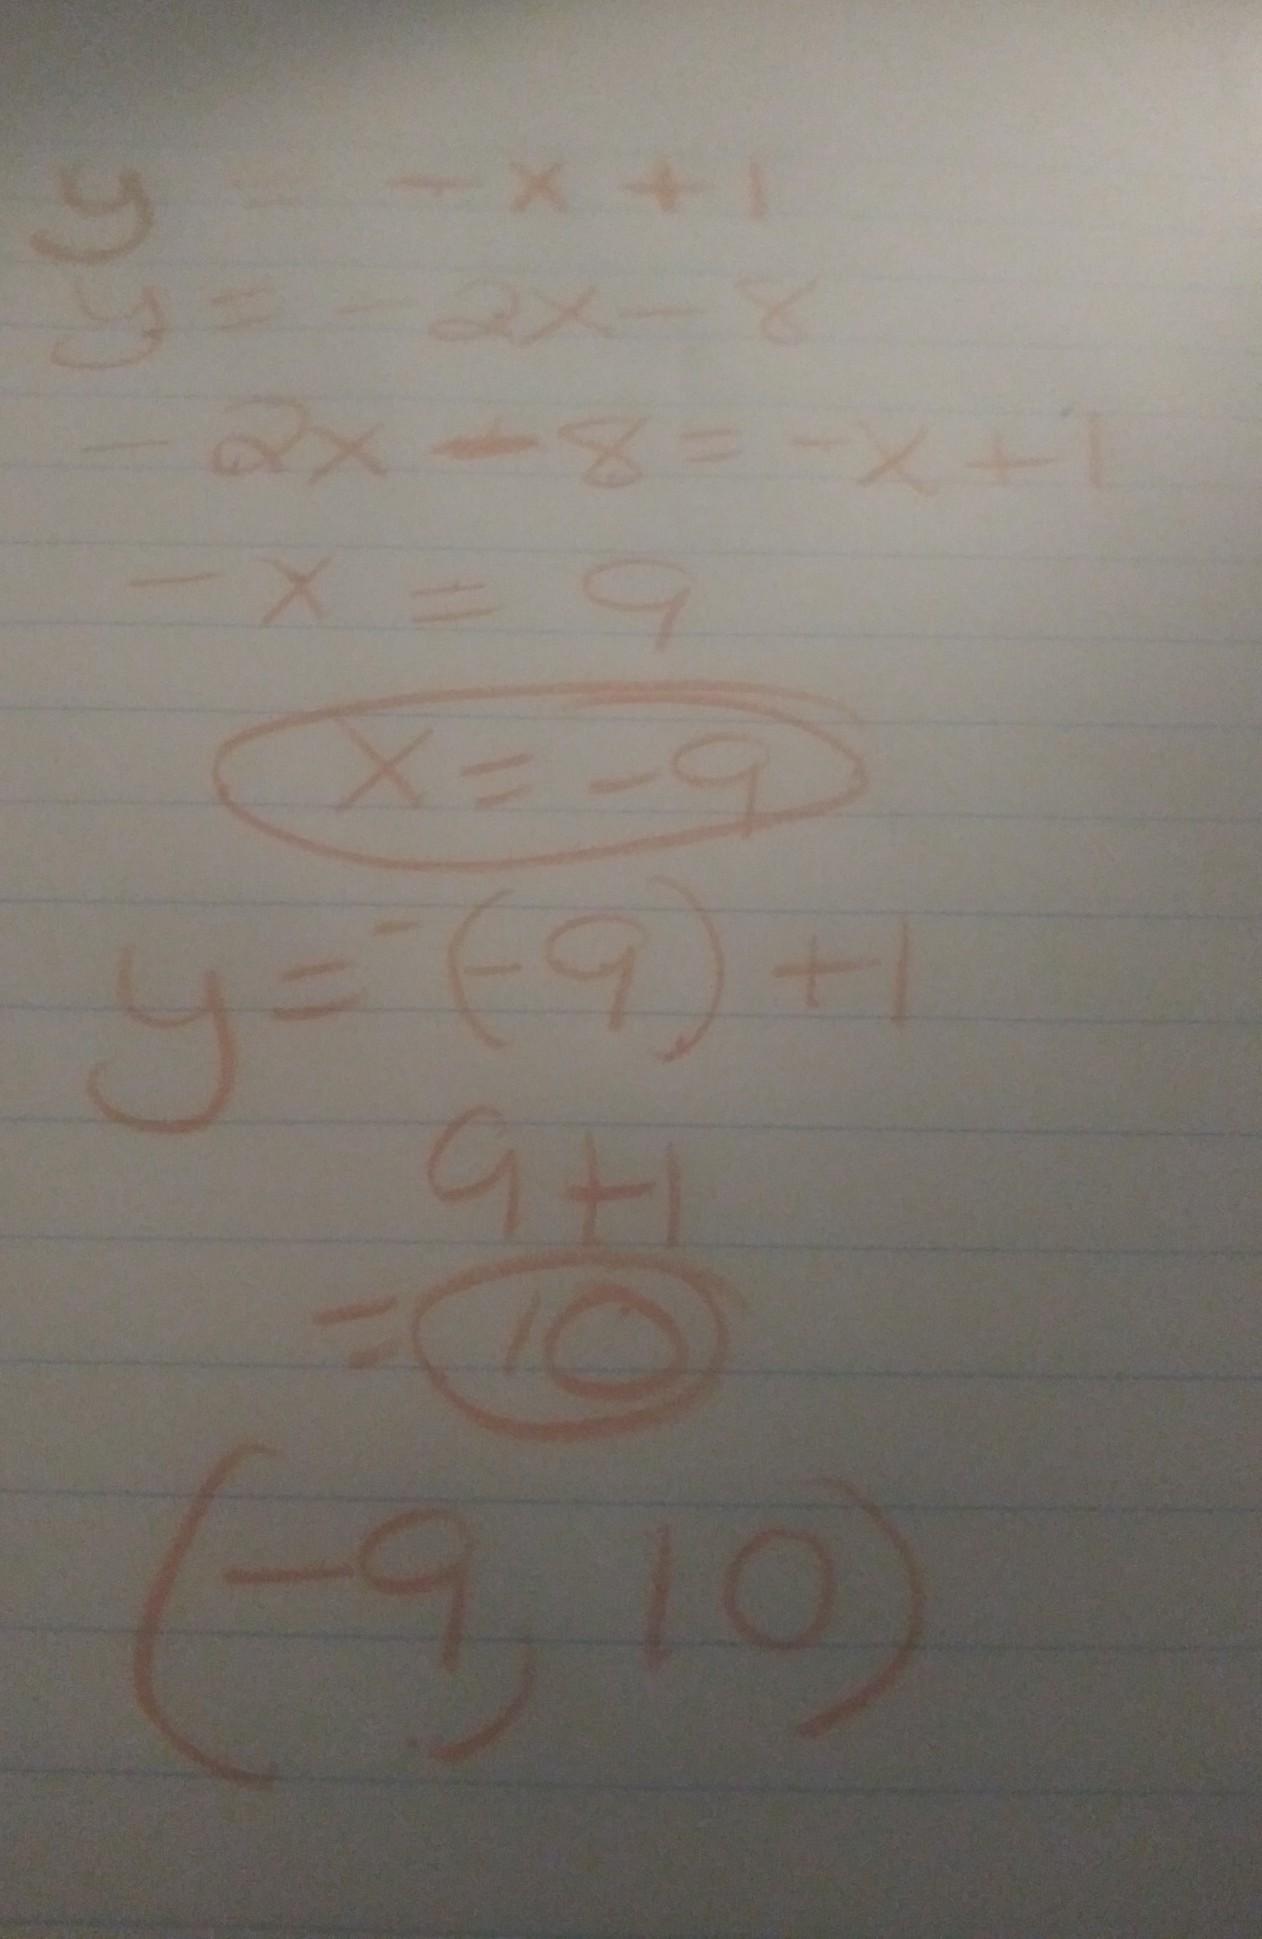 y = -x + 1
y = -2x - 8
-2x - 8 = -x + 1
-x = 9
x = -9
y = -(-9) + 1
9 + 1
= 10
(-9, 10)